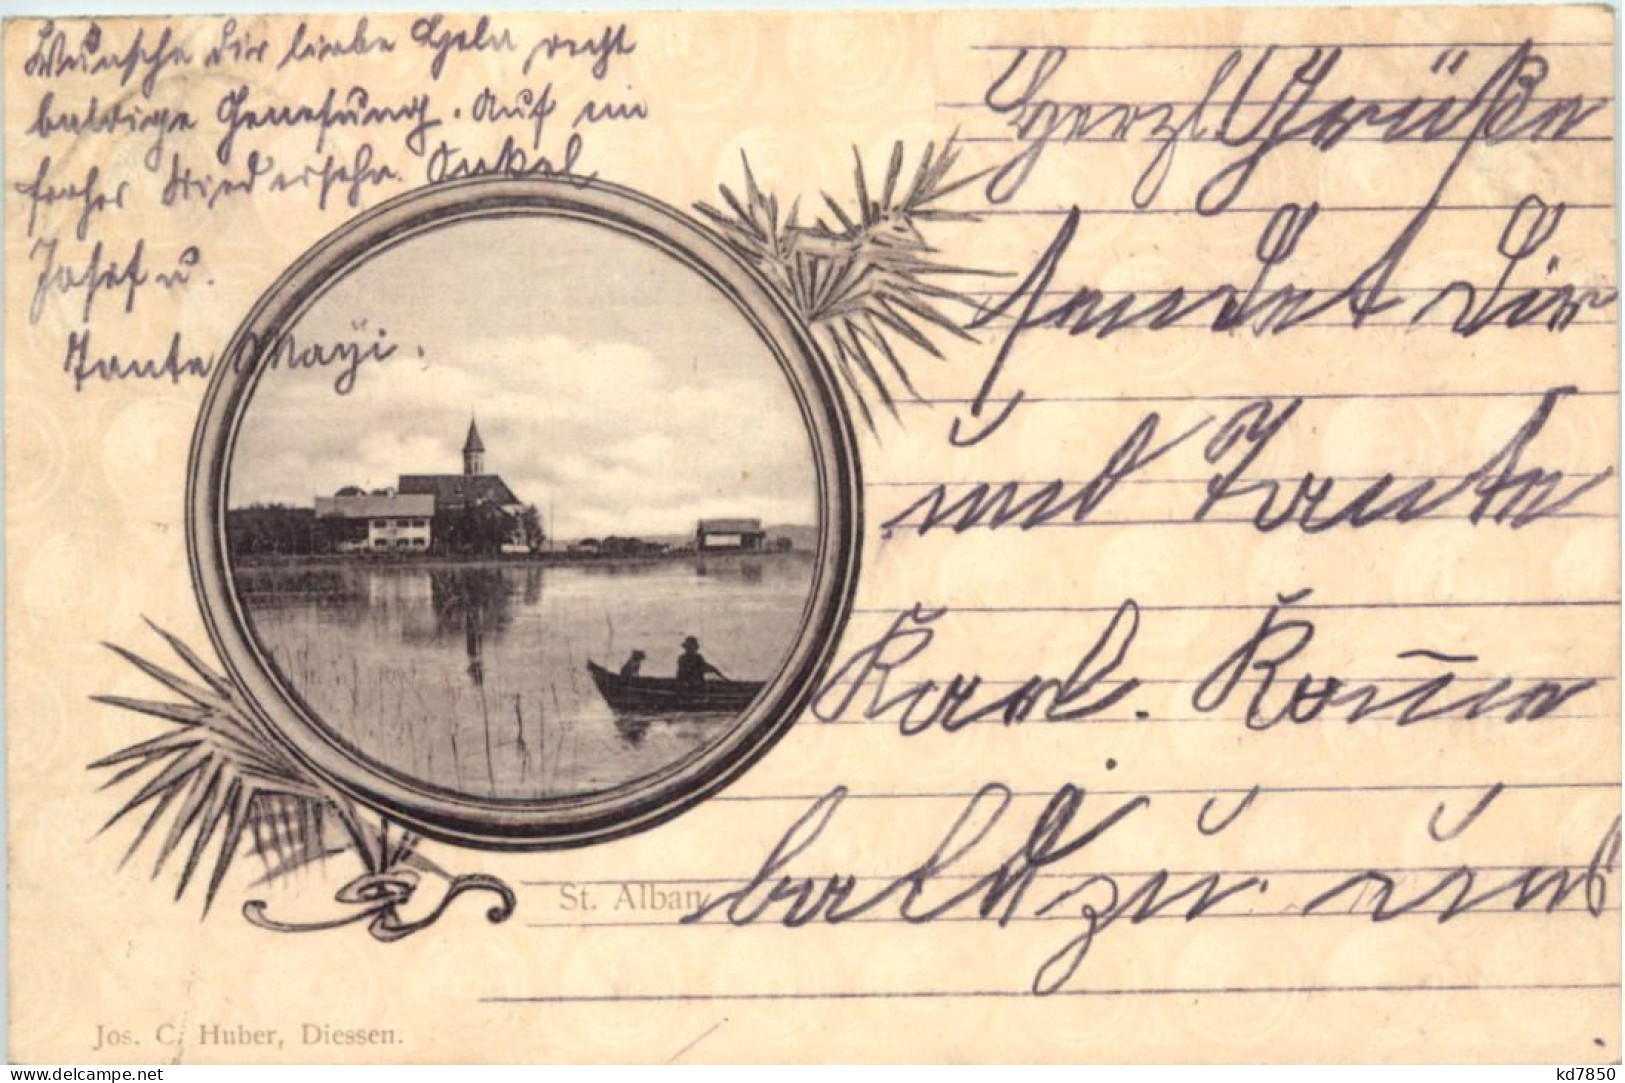 Wünsche dir liebe Hela recht
baldige Genesung. Auf ein
frohes Wiedersehn. Onkel
Josef u.
Tante Mayi.
Herzl. Grüße
sendet Dir
und Tante
Karl. Komm
bald zu uns
St. Alban
Jos. C. Huber, Diessen.
kd7850